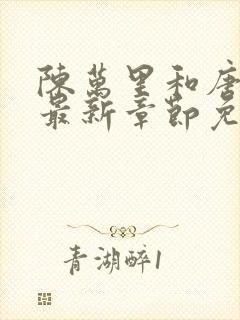 陳萬里和唐
最新章節免
青湖醉1